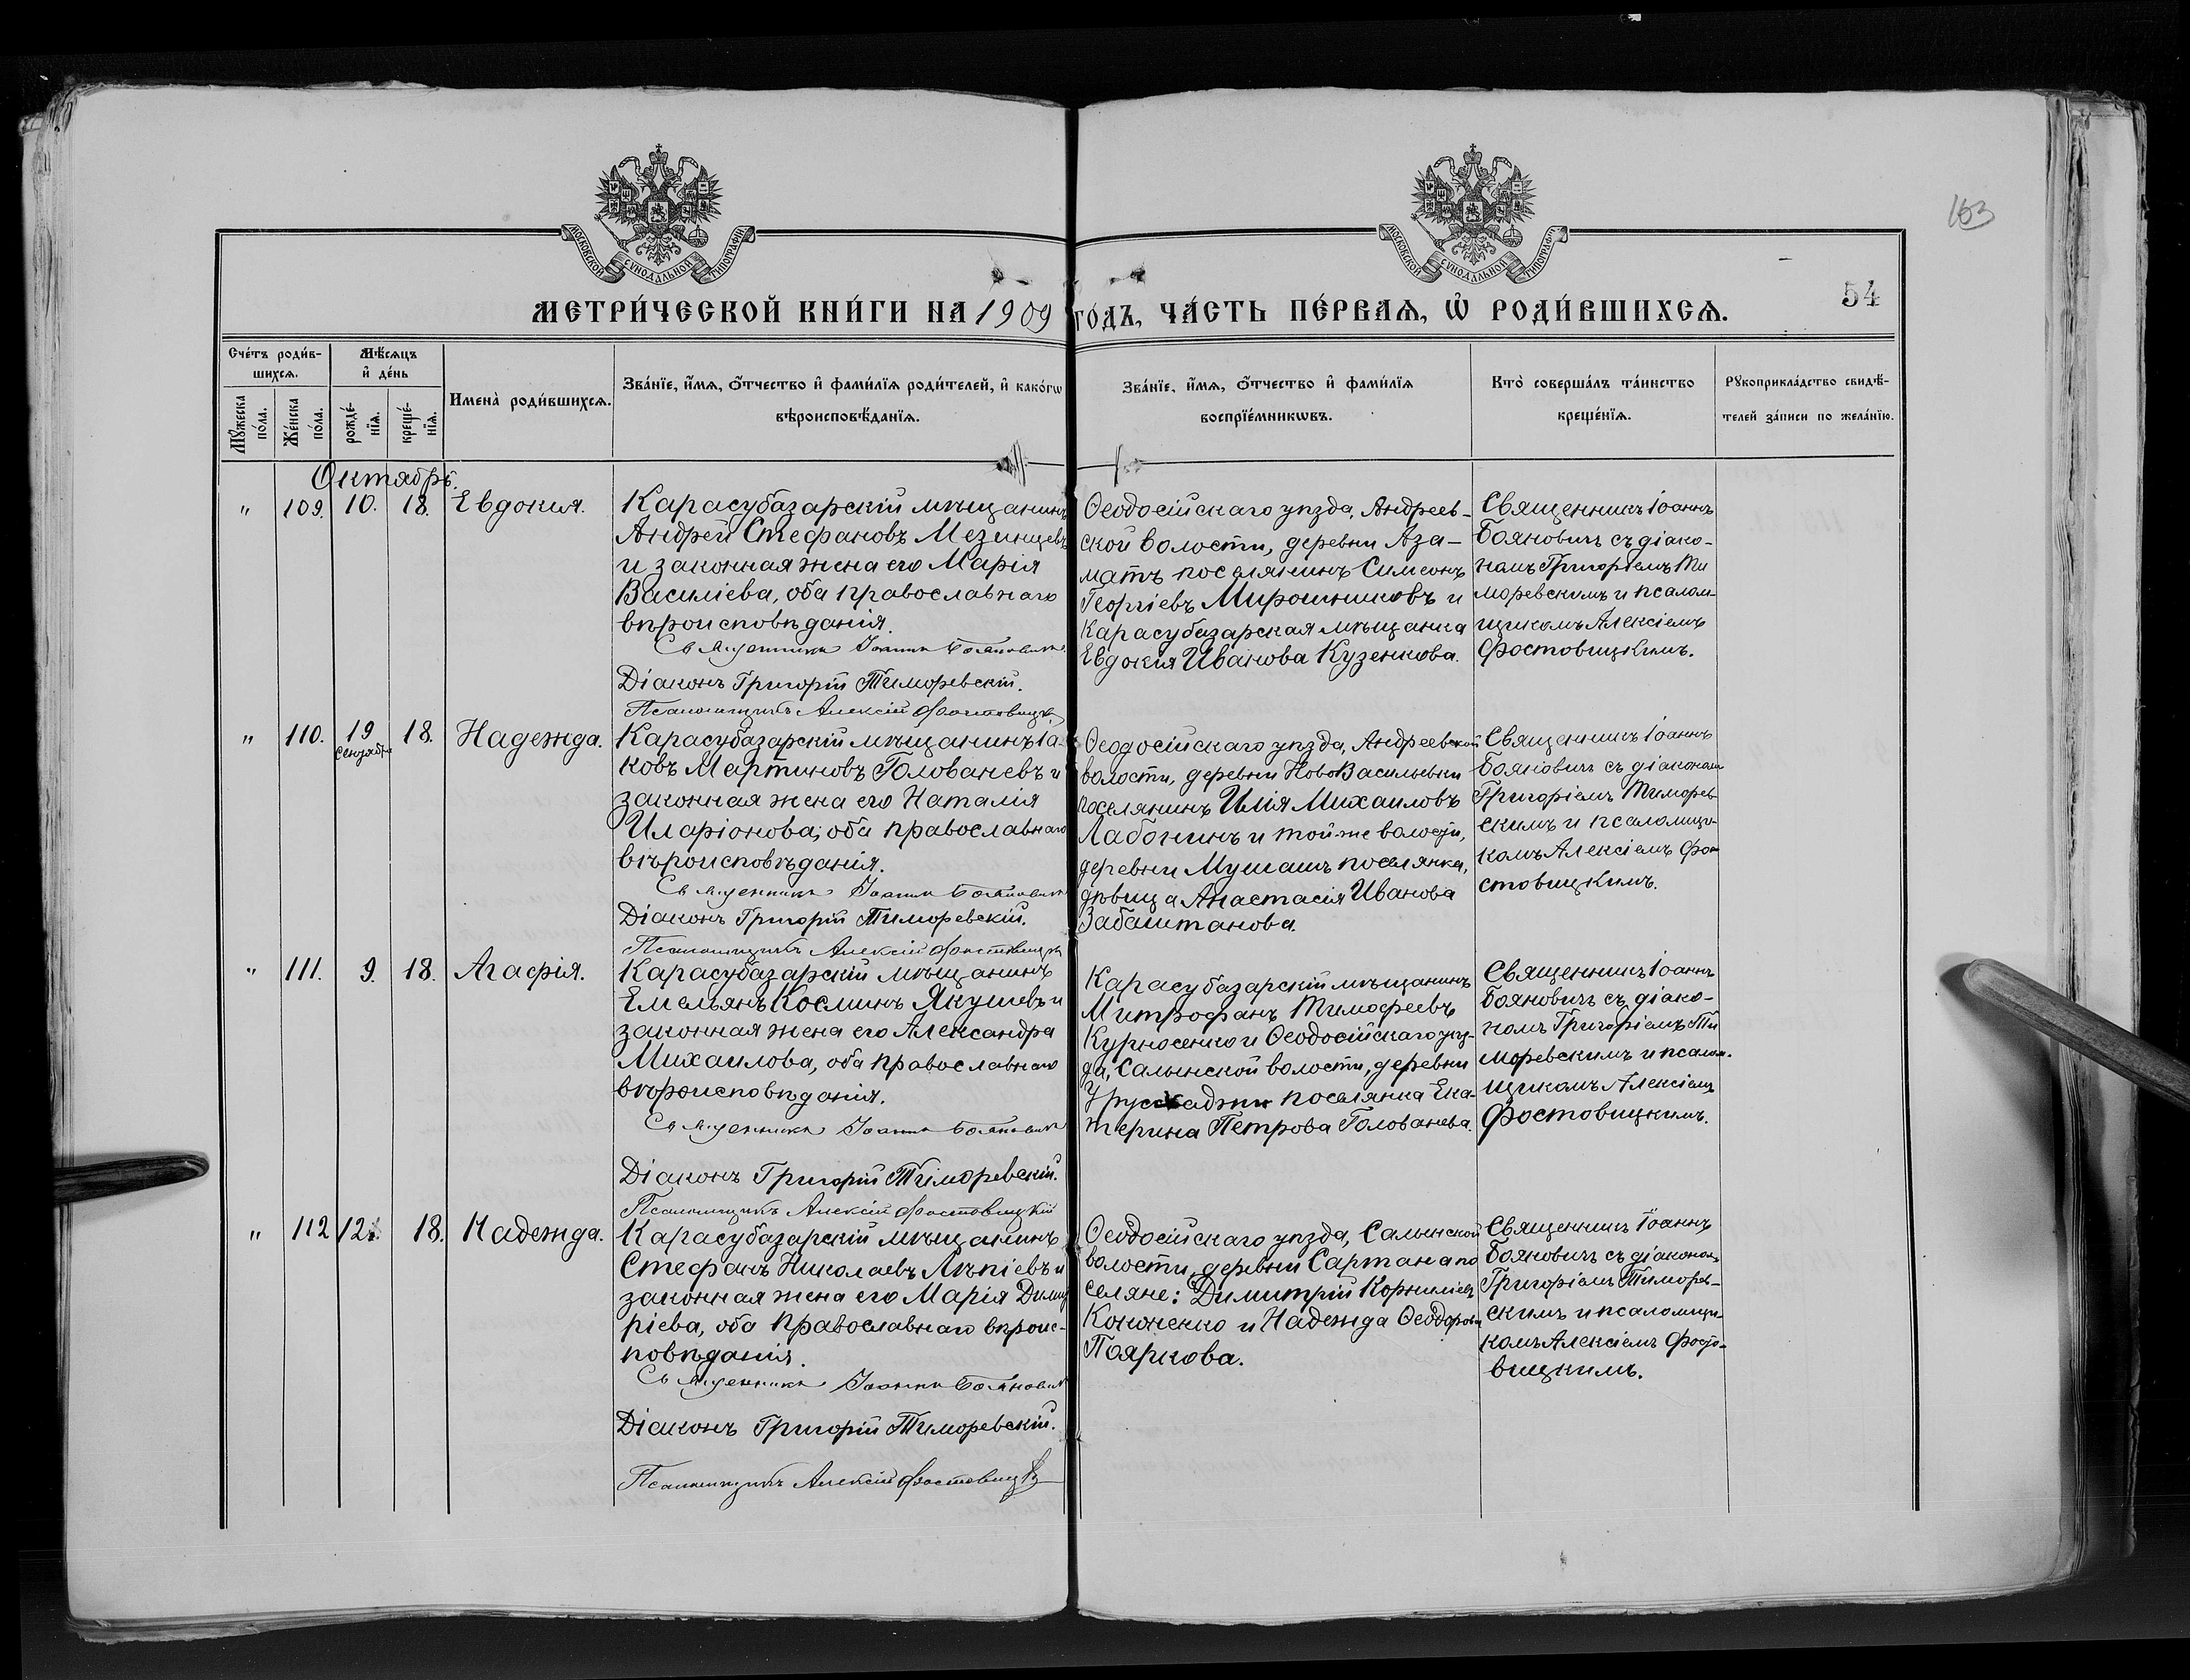 163
МОСКОВСКОЙ СѴНОДАЛЬНОЙ ТИПОГРАФІИ
МОСКОВСКОЙ СѴНОДАЛЬНОЙ ТИПОГРАФІИ
МЕТРИ́ЧЕСКОЙ КНИ́ГИ НА 1909 ГО́ДЪ, ЧА́СТЬ ПЕ́РВАѦ, Ѽ РОДИ́ВШИХСѦ.
54
Сче́тъ роди́в-
шихсѧ.
Мѣ́сѧцъ
и҆ де́нь
Мꙋ́жеска
по́ла.
Же́нска
по́ла.
рожде́-
нїѧ.
креще́-
нїѧ.
Имена̀ роди́вшихсѧ.
Зва́нїе, и҆́мѧ, ѻ҆́тчество и҆ фами́лїѧ роди́телей, и҆ како́гѡ
вѣроисповѣ́данїѧ.
Зва́нїе, и҆́мѧ, ѻ҆́тчество и҆ фами́лїѧ
воспрїе́мникѡвъ.
Кто̀ соверша́лъ та́инство
креще́нїѧ.
Рꙋкоприкла́дство свидѣ́-
телей за́писи по жела́нїю.
Октябрь.
" 109. 10. 18. Евдокия.
Карасубазарскій мѣщанинъ
Андрей Стефановъ Мезинцевъ
и законная жена его Марія
Василіева, оба православнаго
вѣроисповѣданія.
Священникъ Іоаннъ Бояновичъ
Діаконъ Григорій Тиморевскій.
Псаломщикъ Алексій Фостовицкій
Ѳеодосійскаго уѣзда, Андреев-
ской волости, деревни Аза-
матъ поселянинъ Симеонъ
Георгіевъ Мирошниковъ и
Карасубазарская мѣщанка
Евдокія Иванова Кузенкова.
Священникъ Іоаннъ
Бояновичъ съ діако-
номъ Григоріемъ Ти
моревскимъ и псалом-
щикомъ Алексіемъ
Фостовицкимъ.
" 110. 19 Сентября 18. Надежда.
Карасубазарскій мѣщанинъ Іа-
ковъ Мартиновъ Голованевъ и
законная жена его Наталія
Иларіонова; оба православнаго
вѣроисповѣданія.
Священникъ Іоаннъ Бояновичъ
Діаконъ Григорій Тиморевскій.
Псаломщикъ Алексій Фостовицкій
Ѳеодосійскаго уѣзда, Андреевской
волости, деревни НовоВасильевки
поселянинъ Илія Михаиловъ
Лабонинъ и той-же волости,
деревни Мушашъ поселянка,
дѣвица Анастасія Иванова
Забаштанова.
Священникъ Іоаннъ
Бояновичъ съ діакономъ
Григоріемъ Тиморев-
скимъ и псаломщи-
комъ Алексіемъ Фо-
стовицкимъ.
" 111. 9. 18. Агафія.
Карасубазарскій мѣщанинъ
Емельянъ Косминъ Якушевъ и
законная жена его Александра
Михаилова, оба православнаго
вѣроисповѣданія.
Священникъ Іоаннъ Бояновичъ
Діаконъ Григорій Тиморевскій.
Псаломщикъ Алексій Фостовицкій
Карасубазарскій мѣщанинъ
Митрофанъ Тимофеевъ
Курносенко и Ѳеодосійскаго уѣз-
да, Салынской волости, деревни
поселянка Ека-
терина Петрова Голованева.
Священникъ Іоаннъ
Бояновичъ съ діако-
номъ Григоріемъ Ти
моревскимъ и псалом-
щикомъ Алексіемъ
Фостовицкимъ.
" 112 12. 18. Надежда.
Карасубазарскій мѣщанинъ
Стефанъ Николаевъ Лѣпіевъ и
законная жена его Марія Димит
ріева, оба православнаго вѣроис-
повѣданія.
Священникъ Іоаннъ Бояновичъ
Діаконъ Григорій Тиморевскій.
Псаломщикъ Алексій Фостовицкій
Ѳеодосійскаго уѣзда, Салынской
волости, деревни Сартана по
селяне: Димитрій Корниліевъ
Кононенко и Надежда Ѳеодорова
Пояркова.
Священникъ Іоаннъ
Бояновичъ съ діакономъ
Григоріемъ Тиморев-
скимъ и псаломщи-
комъ Алексіемъ Фосто-
вицкимъ.